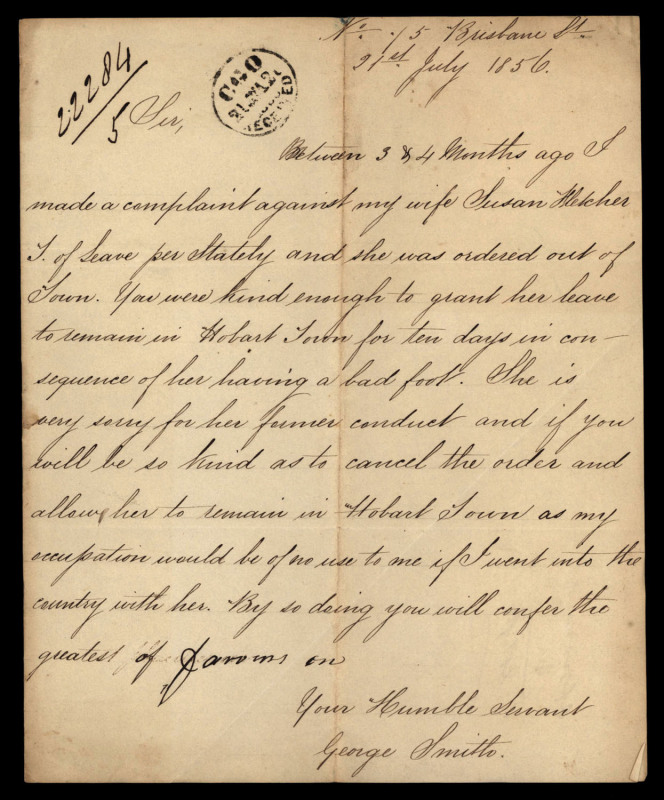 No. 75 Brisbane St.
21st July 1856.
22284
5
CSO
RECEIVED
Sir,
Between 3 & 4 Months ago I
made a complaint against my wife Susan Fletcher
T. of Leave per Stately and she was ordered out of
Town. You were kind enough to grant her leave
to remain in Hobart Town for ten days in con-
sequence of her having a bad foot. She is
very sorry for her former conduct and if you
will be so kind as to cancel the order and
allow her to remain in Hobart Town as my
occupation would be of no use to me if I went into the
country with her. By so doing you will confer the
greatest of favours on
Your Humble Servant
George Smith.